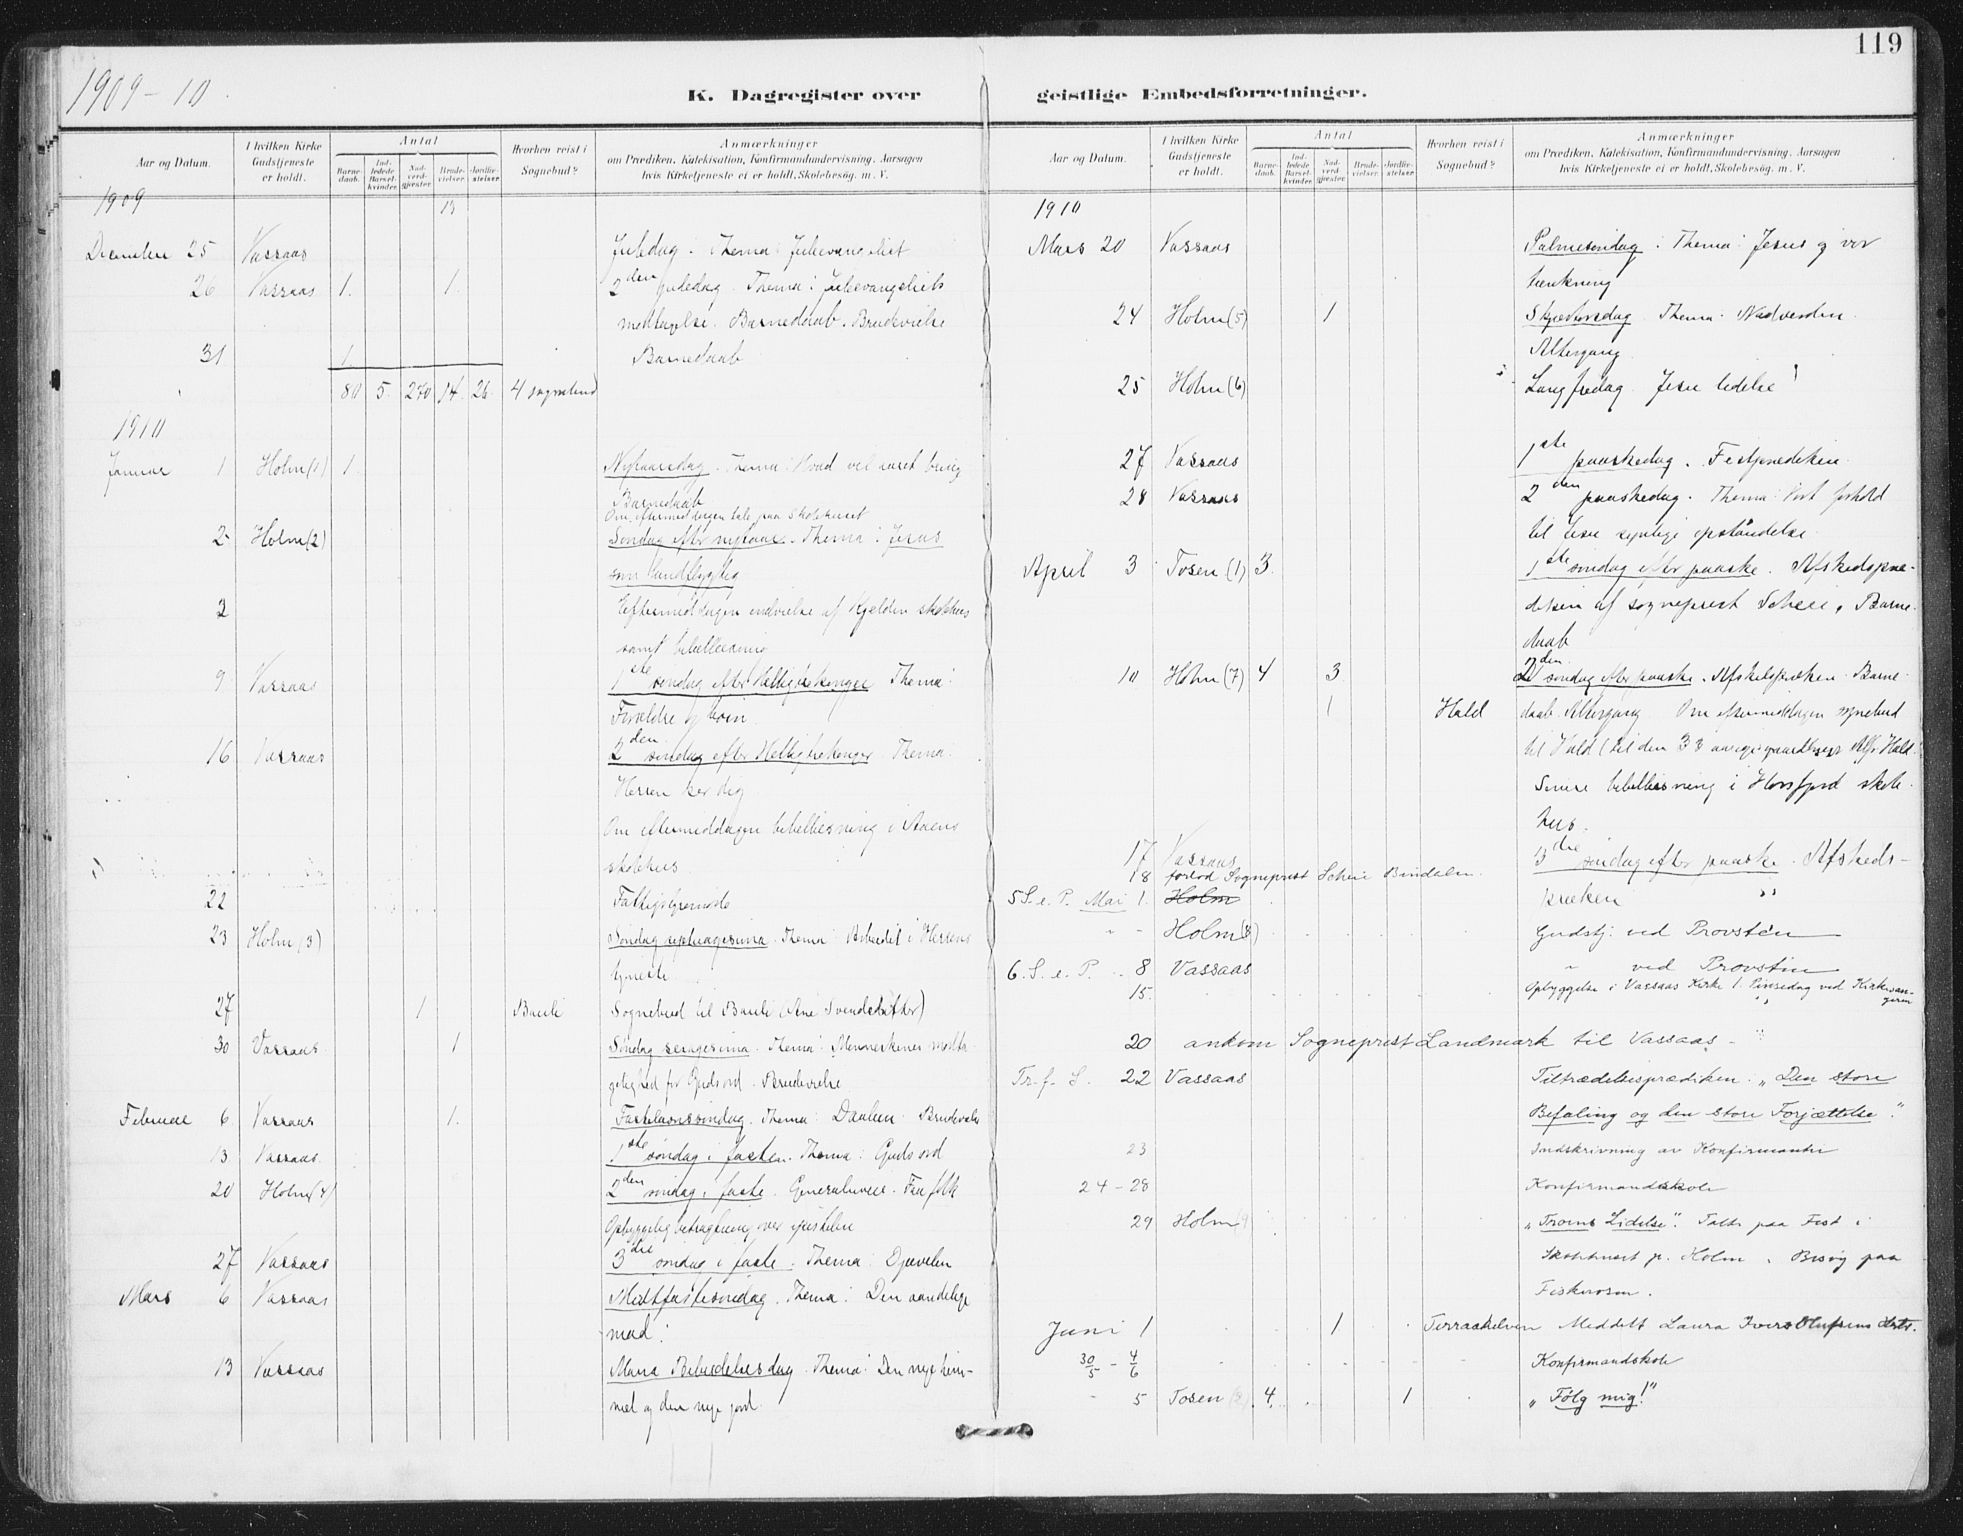 119
1909-10.
K. Dagregister over geistlige Embedsforretninger.
Aar og Datum.
I hvilken Kirke Gudstjeneste er holdt.
Antal
Barne-daab.
Ind-ledede Barsel-kvinder.
Nad-verd-gjæster.
Brude-vielser.
Jordfæ-stelser.
Hvorhen reist i Sognebud?
Anmærkninger
om Prædiken, Katekisation, Konfirmandundervisning, Aarsagen
hvis Kirketjeneste ei er holdt, Skolebesøg. m. V.
1909
13
December 25 Vassaas Juledag. Thema: Juleevangeliet
26 Vassaas 1. 1. 2den juledag. Thema: Juleevangeliets
modtagelse. Barnedaab. Brudevielse
31 1 Barnedaab
80 5. 270 14. 26. 4 sognebud
1910
Januar 1 Holm (1) 1. Nytaarsdag. Thema: Hvad vil aaret bring
Barnedaab
Om eftermiddagen tale paa Skolehuset
2 Holm (2) Søndag efter nytaar. Thema: Jesus
som landflygtig
2 Eftermiddagen indvielse af Kjelden skolehus
samt bibellæsning
9 Vassaas 1ste søndag efter Helligtrekonger Thema:
Forældre og børn.
16 Vassaas 2den søndag efter Helligtrekonger. Thema:
Herren ser dig
Om eftermiddagen bibellæsning i Aaens
skolehus
22 Fattigstyremøde
23 Holm (3) Søndag septuagesima. Thema: Arbeidet i Herrens
tjeneste
27 1 Baali Sognebud til Baali (Ane Svendsdatter)
30 Vassaas 1 Søndag sexagesima. Thema: Menneskenes modta-
gelighed for Guds ord. Brudevielse
Februar 6 Vassaas 1. Fastelavnssøndag. Thema: Daaben. Brudevielse
13 Vassaas 1ste søndag i fasten. Thema: Guds ord
20 Holm (4) 2den søndag i faste. Faa folk
Opbyggelig betragtning over epistelen
27 Vassaas 3die søndag i faste. Thema: Djævelen
Mars 6 Vassaas Midtfastesøndag. Thema: Den aandelige
mad.
13 Vassaas Maria Bebudelsesdag. Thema: Den nye him-
mel og den nye jord.
Aar og Datum.
I hvilken Kirke Gudstjeneste er holdt.
Antal
Barne-daab.
Ind-ledede Barsel-kvinder.
Nad-verd-gjæster.
Brude-vielser.
Jordfæ-stelser.
Hvorhen reist i Sognebud?
Anmærkninger
om Prædiken, Katekisation, Konfirmandundervisning, Aarsagen
hvis Kirketjeneste ei er holdt, Skolebesøg. m. V.
1910
Mars 20 Vassaas Palmesøndag. Thema: Jesus og vor
tænkning
24 Holm (5) 1 Skjærtorsdag. Thema: Nadverden.
Altergang
25 Holm (6) Langfredag. Jesu lidelse
27 Vassaas 1ste paaskedag. Festprædiken.
28 Vassaas 2den paaskedag. Thema: Vort forhold
til Jesu synlige opstandelse.
April 3 Tosen (1) 3. 1ste søndag efter paaske. Afskedspræ-
diken af sogneprest Scheie. Barne-
daab
10 Holm (7) 4 3 2den søndag efter paaske. Afskedspræken. Barne-
1 Hald daab. Altergang Om eftermiddagen sognebud
til Hald (til den 33 aarige Alfr Hald.
Senere bibellæsning i Horsfjord skole-
hus.
17 Vassaas 3die søndag efter paaske. Afskeds-
18 forlod Sogneprest Scheie Bindalen.
5 S. e. P. Mai 1. Holm præken "
" - Holm (8) Gudstj. ved Provsten
6. S. e. P. " 8 Vassaas " ved Provsten
15. Opbyggelse i Vassaas Kirke 1. Pinsedag ved Kirkesan-
geren
20 ankom Sogneprest Landmark til Vassaas - "
Tr. f. S. 22 Vassaas Tiltrædelsesprædiken: „Den store
Befaling og den store Forjættelse."
23 Indskrivning av Konfirmander
24-28 Konfirmandskole
29 Holm (9) „Troens Lidelse". Talte paa Fest i
Skolehuset p. Holm. Besøg paa
Fiskerosen.
Juni 1 1 Terraakelven Meddelt Laura Olufsens dtr.
30/5 - 4/6 Konfirmandskole
5 Tosen (2) 4. 1 „Følg mig!"